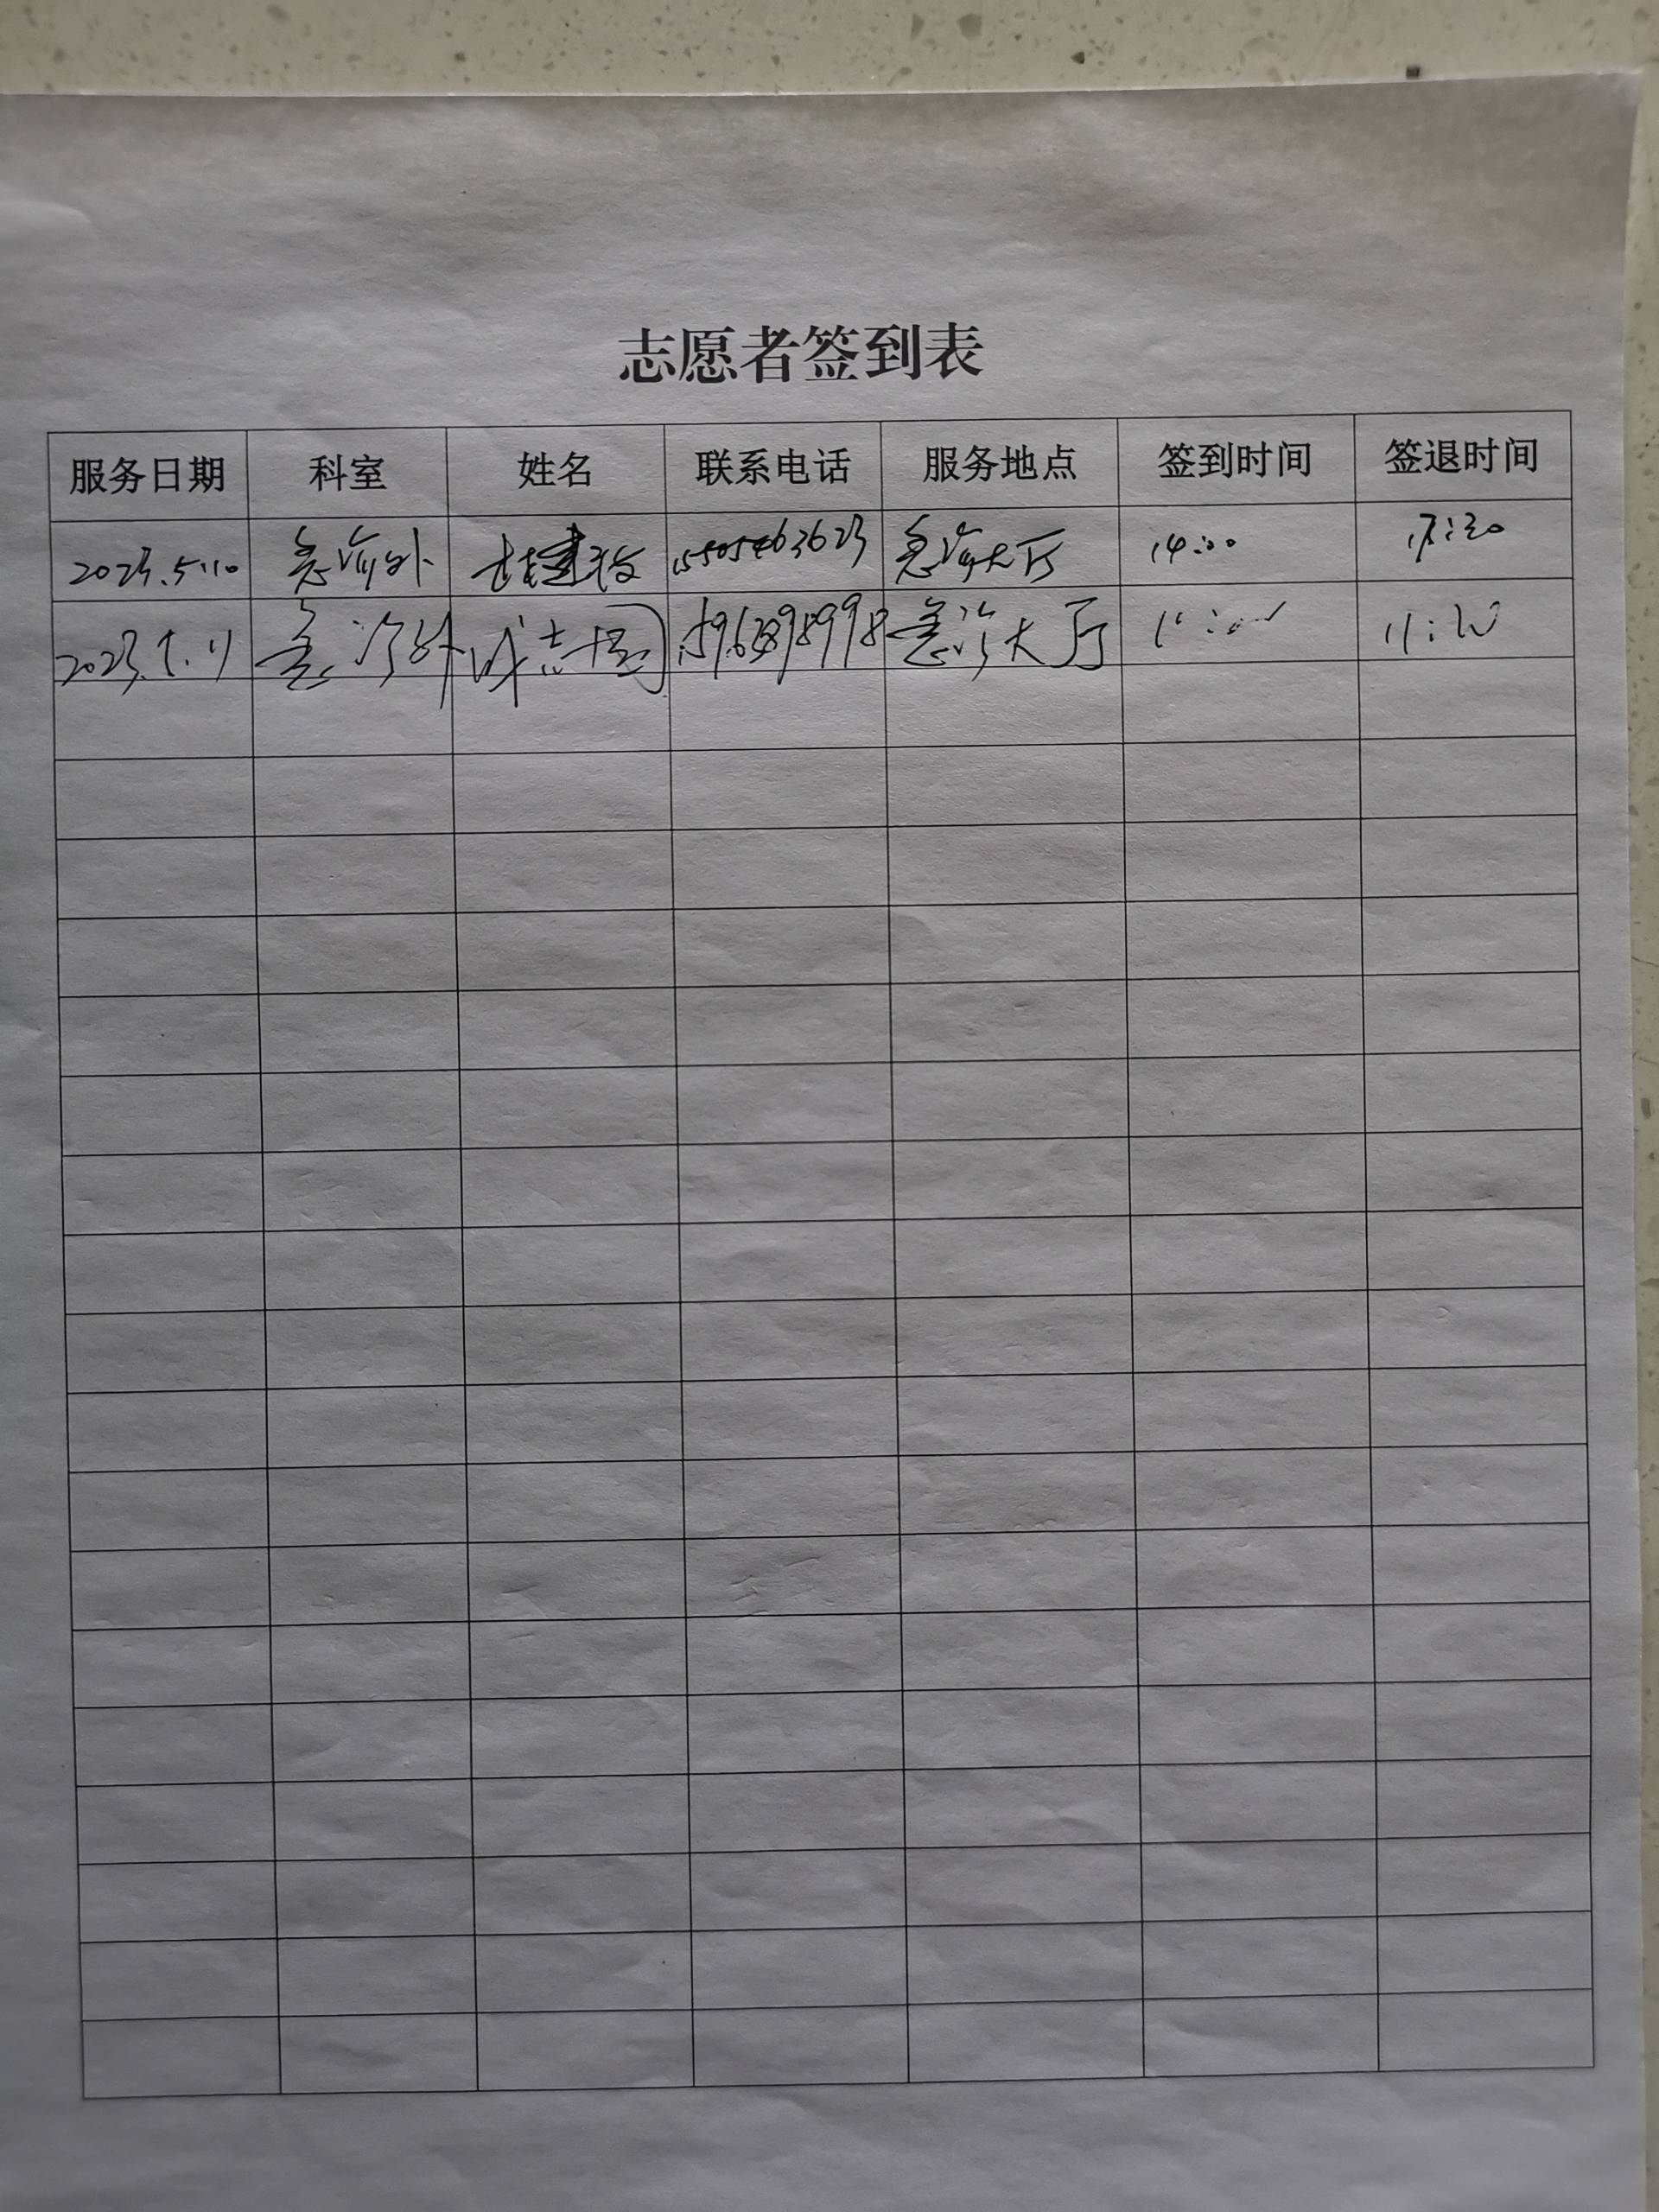 志愿者签到表
服务日期 科室 姓名 联系电话 服务地点 签到时间 签退时间
2023.5.10 急诊外 15505463623 急诊大厅 14:00 17:30
2023.5.11 急诊外 急诊大厅